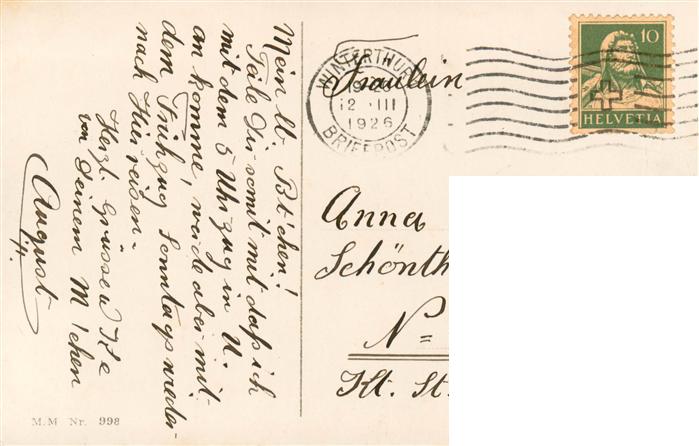 Mein lb Btchen!
Teile Dir somit mit daß ich
mit dem 5 Uhr zug in U.
an komme, werde aber mit-
dem Frühzug Sonntags wieder
nach Hier reisen.
Herzl. Grüssen
von Deinem M'chen
August
M.M Nr. 998
WINTERTHUR
12 III
1926
BRIEFPOST
10
HELVETIA
Fräulein
Anna
Schönth
N=
Kt. St.